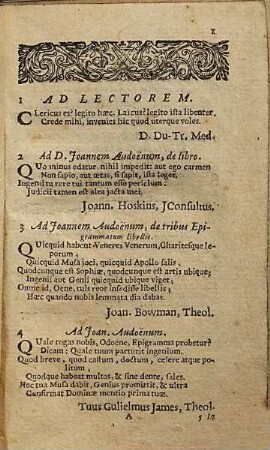 1
1 AD LECTOREM.
CLericus es? legito hæc. Laicus? legito ista libenter.
Crede mihi, invenies hîc quod uterque voles.
D. Du-Tr. Med.
2 Ad D. Joannem Audoënum, de libro.
QUo minus edatur, nihil impedit: aut ego carmen
Non sapio, aut ætas, si sapit, ista loget.
Ingenii tu rere tui tantum esse periclum:
Judicii tamen est alea jacta mei,
Joann. Hoskins, JConsultus.
3 Ad Joannem Audoënum, de tribus Epi-
grammatum libellis.
QUicquid habent Veneres Venerum, Charitesque le-
porum;
Quicquid Musa joci, quicquid Apollo salis.
Quodcunque est Sophiæ, quodcunque est artis ubique;
Ingenii aut Genii quicquid ubique viget;
Omne id, Oene, tuis reor insedisse libellis;
Hæc quando nobis lemmata dia dabas.
Joan. Bowman, Theol.
4 Ad Joan. Audoënum.
QUale rogas nobis, Odoëne, Epigramma probetur?
Dicam: Quale tuum parturit ingenium.
Quod breve, quod castum, doctum, celere atque po-
litum;
Quodque habeat multos, & sine dente, sales.
Hoc tua Musa dabit, Genius promittit, & ultra
Confirmat Dominæ mentio prima tuæ.
Tuus Gulielmus James, Theol.
A